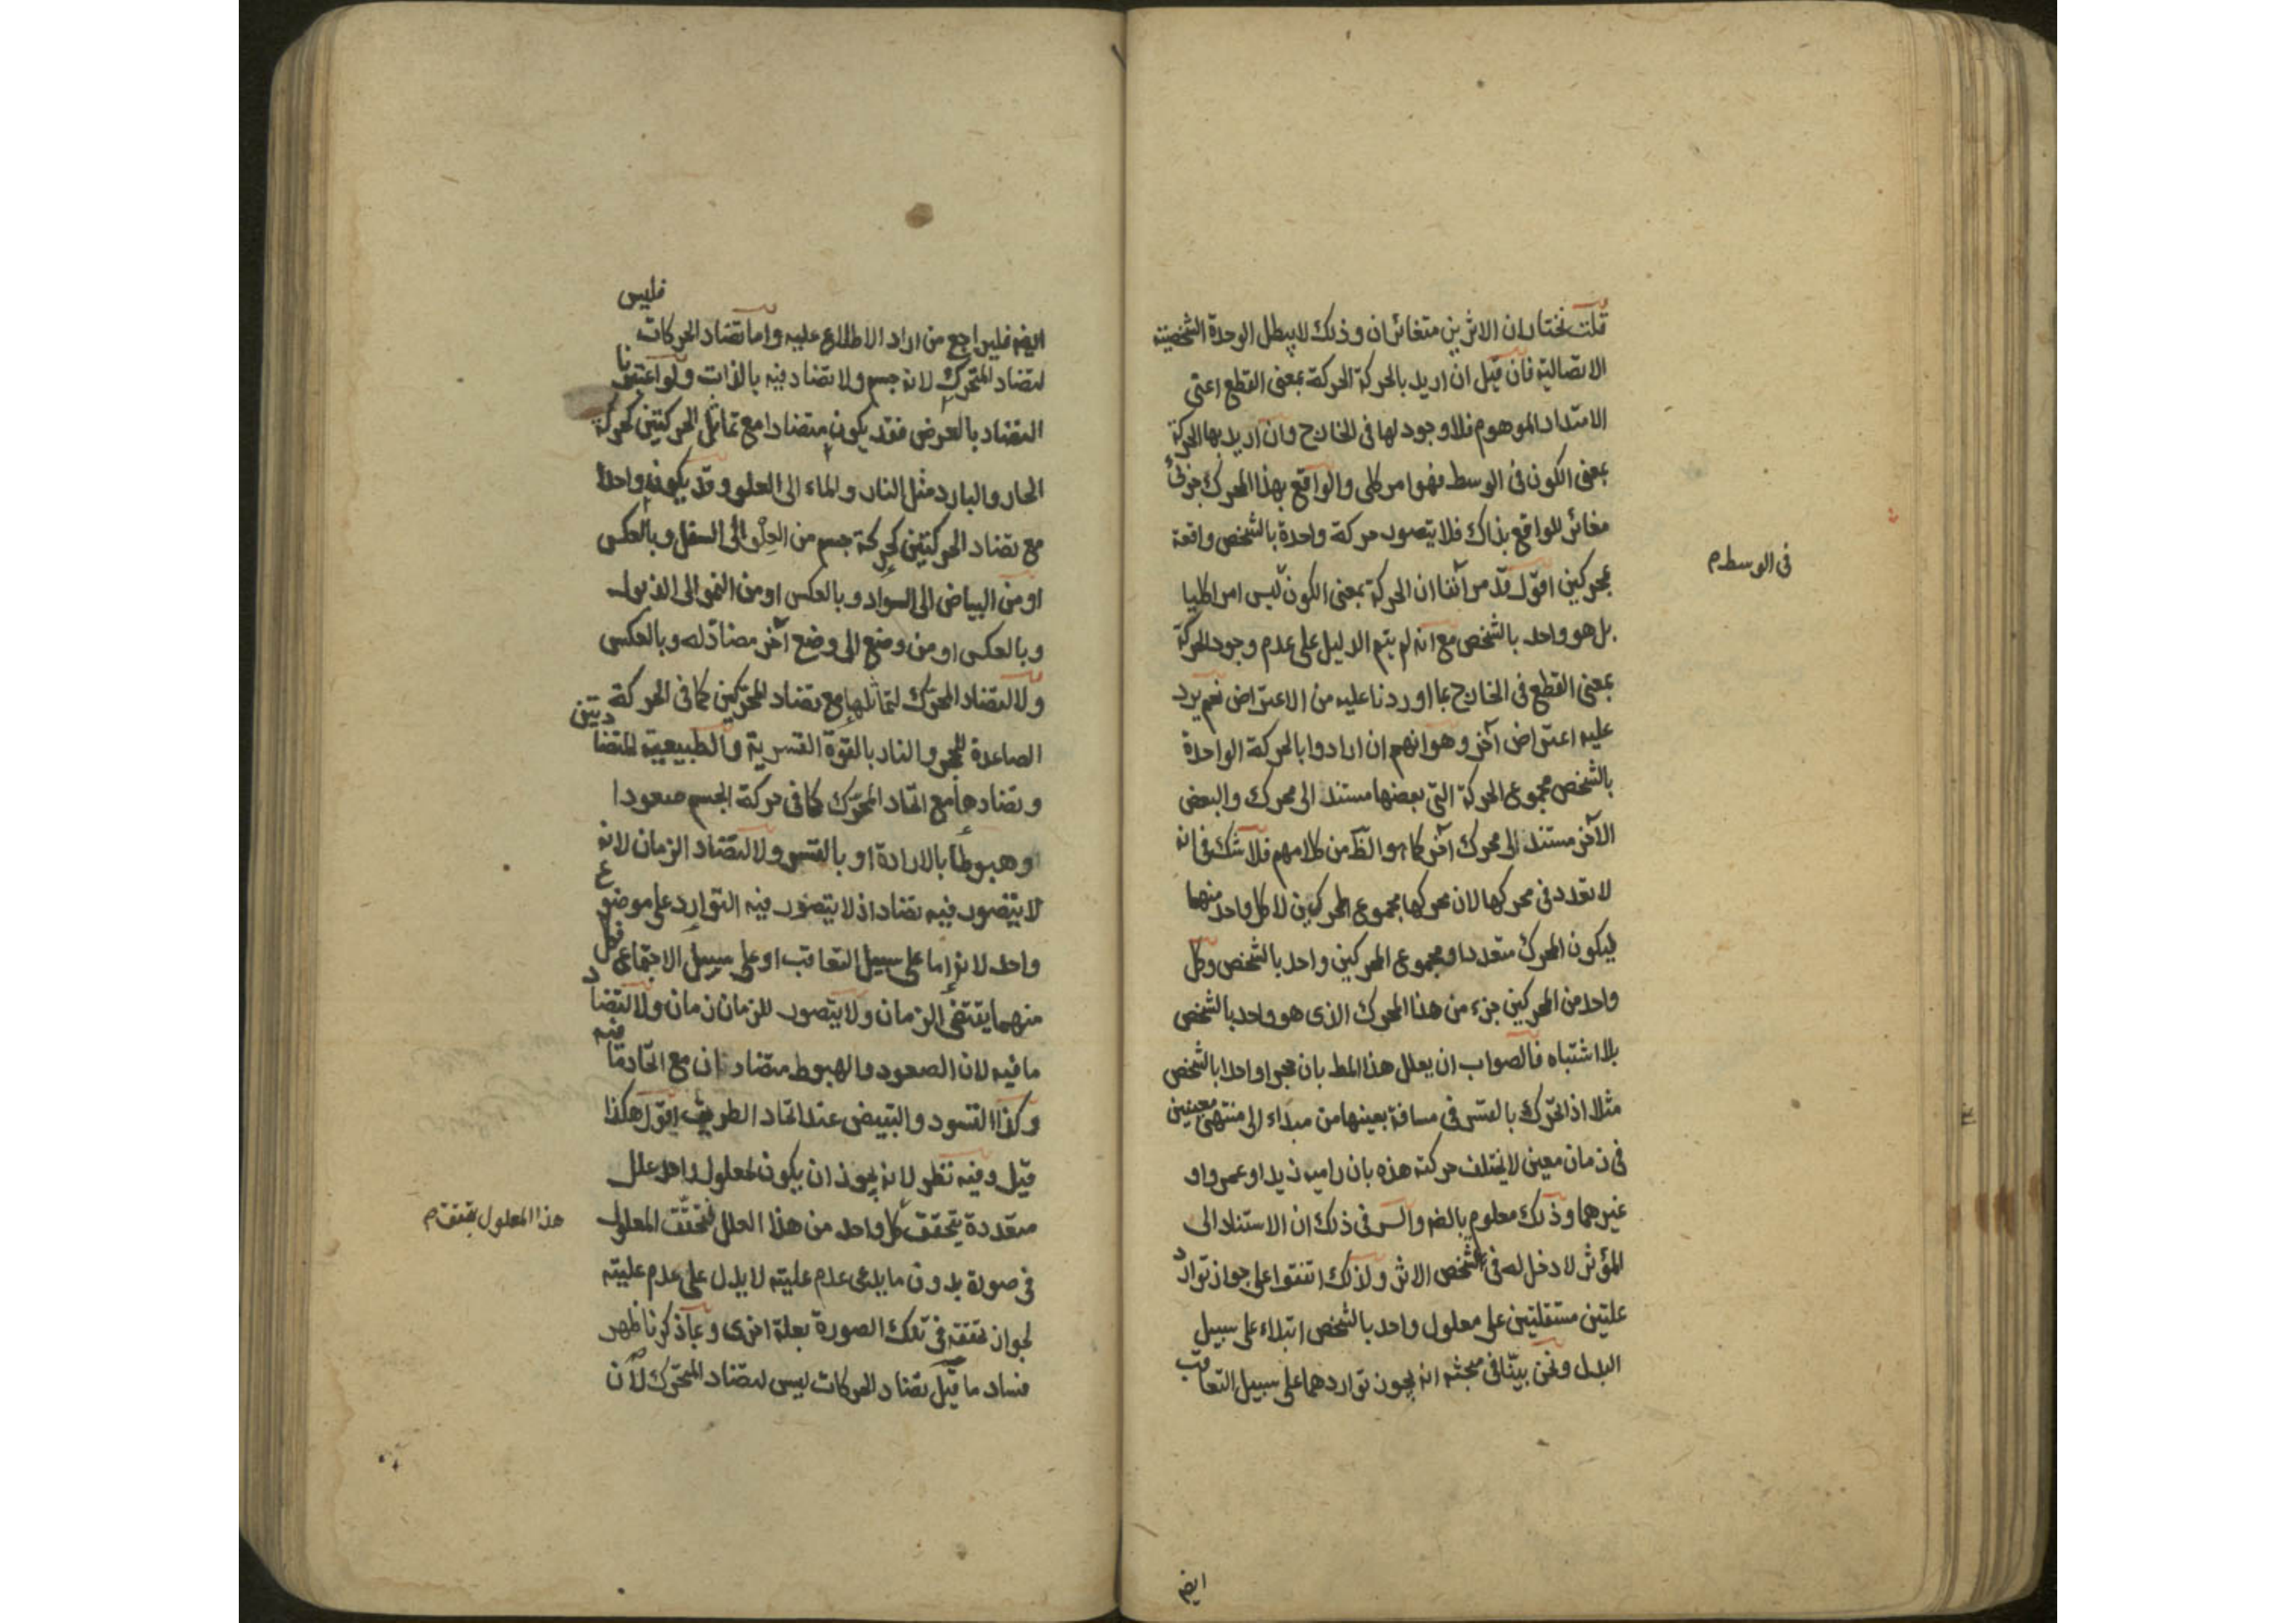 قلت نختار ان الاثرين متغائران وذلك لا يبطل الوحدة الشخصية
الاتصالية فان قيل ان اريد بالحركة الحركة بمعنى القطع اعنى
الامتداد الموهوم فلا وجود لها فى الخارج وان اريد بها الحركة
بمعنى الكون فى الوسط فهو امر كلى والواقع بهذا المحرك جزئى
مغائر للواقع بذاك فلا يتصور حركة واحدة بالشخص واقعة
بمحركين اقول قد مر آنفا ان الحركة بمعنى الكون ليس امرا كليا
فى الوسط م
بل هو واحد بالشخص مع انه لم يتم الدليل على عدم وجود الحركة
بمعنى القطع فى الخارج بما اوردنا عليه من الاعتراض نعم يرد
عليه اعتراض آخر وهو انهم ان ارادوا بالحركة الواحدة
بالشخص مجموع الحركة التى بعضها مستند الى محرك والبعض
الآخر مستند الى محرك آخر كما هو الظ من كلامهم فلا شك فى انه
لا تعدد فى محركها لان محركها مجموع المحركين لا كل واحد منهما
ليكون المحرك متعددا ومجموع المحركين واحد بالشخص وكل
واحد من المحركين جزء من هذا المحرك الذى هو واحد بالشخص
بلا اشتباه فالصواب ان يعلل هذا المط بان حجرا واحدا بالشخص
مثلا اذا تحرك بالقسر فى مسافة بعينها من مبداء الى منتهى معينين
فى زمان معين لا يختلف حركته هذه بان راميه زيد او عمرو او
غيرهما وذلك معلوم بالضه والسر فى ذلك ان الاستناد الى
المؤثر لا دخل له فى تشخص الاثر ولذلك اتفقوا على جواز توارد
علتين مستقلتين على معلول واحد بالشخص ابتداء على سبيل
البدل ونحن بينا فى مبحثه انه يجوز تواردهما على سبيل التعاقب
ايضا
ايضا فليراجع من اراد الاطلاع عليه واما تضاد الحركات فليس
لتضاد المتحرك لانه جسم ولا تضاد فيه بالذات ولو اعتبرنا
التضاد بالعرض فقد يكون متضادا مع تماثل الحركتين كحركة
الحار والبارد مثل النار والماء الى العلو وقد يكون واحدا
مع تضاد الحركتين كحركة جسم من العلو الى السفل وبالعكس
او من البياض الى السواد وبالعكس او من النمو الى الذبول
وبالعكس او من وضع الى وضع آخر مضاد له وبالعكس
ولا لتضاد المحرك لتماثلها مع تضاد المحركين كما فى الحركة
الصاعدة للحجر والنار بالقوة القسرية والطبيعية المتضادتين
وتضادها مع اتحاد المحرك كما فى حركة الجسم صعودا
وهبوطا بالارادة او بالقسر ولا لتضاد الزمان لانه
لا يتصور فيه تضاد اذ لا يتصور فيه التوارد على موضوع
واحد لانه اما على سبيل التعاقب او على سبيل الاجتماع فكل
منهما يقتضى الزمان ولا يتصور للزمان زمان ولا لتضاد
ما فيه لان الصعود والهبوط متضادان مع اتحاد ما فيه
وكذا التسود والتبيض عند اتحاد الطريق اقول هكذا
قيل وفيه نظر لانه يجوز ان يكون لمعلول واحد علل
متعددة يتحقق كل واحد من هذا العلل فتحقق المعلول
هذا المعلول بتحقق م
فى صورة بدون ما يدعى عدم عليته لا يدل على عدم عليته
لجواز تحققه فى تلك الصورة بعلة اخرى وبما ذكرنا ظهر
فساد ما قيل تضاد الحركات ليس لتضاد المتحرك لان